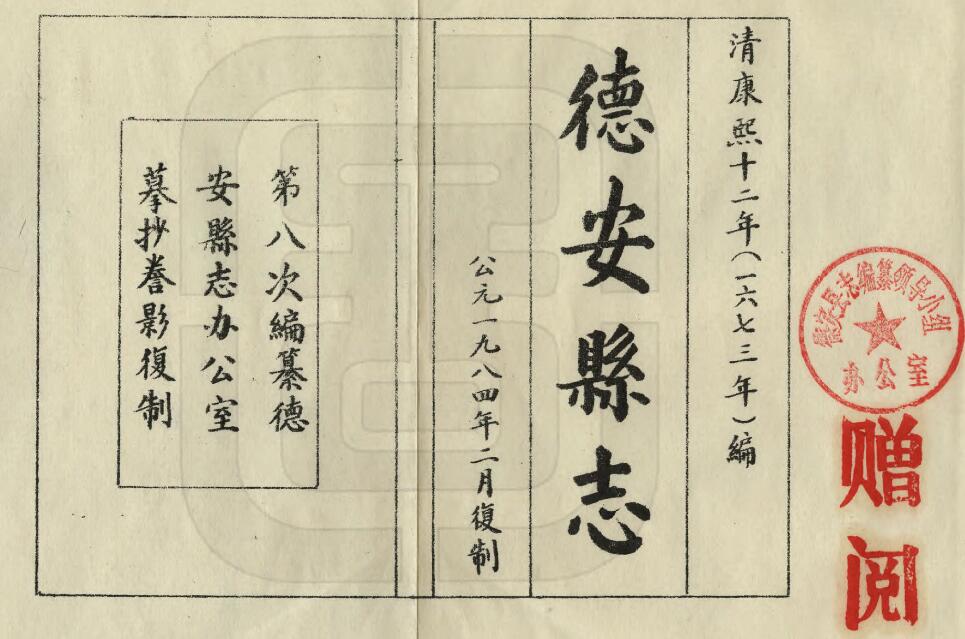 清康熙十二年(一六七三年)编
德安縣志
公元一九八四年二月復制
第八次編纂德
安縣志办公室
摹抄誊影復制
德安县志编纂领导小组
办公室
赠阅